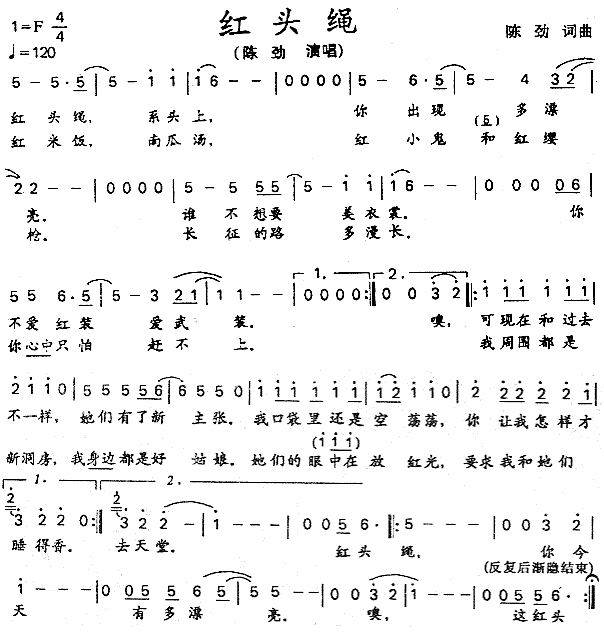 红头绳
1=F 4/4
♩=120
(陈劲 演唱)
陈劲 词曲
5 - 5· 5 | 5 - i i | i 6 - - | 0 0 0 0 | 5 - 6· 5 | 5 - 4 3 2 |
红 头 绳, 系 头 上, 你 出 现 (5) 多 漂
红 米 饭, 南 瓜 汤, 红 小 鬼 和 红 缨
2 2 - - | 0 0 0 0 | 5 - 5 5 5 | 5 - i i | i 6 - - | 0 0 0 0 6 |
亮。 谁 不 想 要 美 衣 裳。 你
枪。 长 征 的 路 多 漫 长。
5 5 6· 5 | 5 - 3 2 i | i - - | 1. 0 0 0 0 :|| 2. 0 0 3 2 ||: i i i i i i i |
不 爱 红 装 爱 武 装。 噢, 可 现 在 和 过 去
你 心 中 只 怕 赶 不 上。 我 周 围 都 是
2 i i 0 | 5 5 5 5 5 6 | 6 5 5 0 | i i i i i i i | i 2 i i 0 | 0 2 2 2 2 i |
不 一 样, 她 们 有 了 新 主 张。 我 口 袋 里 还 是 空 荡 荡, 你 让 我 怎 样 才
(i i i)
新 洞 房, 我 身 边 都 是 好 姑 娘。 她 们 的 眼 中 在 放 红 光, 要 求 我 和 她 们
1. 2.
3 2 2 0 :|| 3 2 2 - | - i - - | 0 0 5 6· ||: 5 - - - | 0 0 3 2 |
睡 得 香。 去 天 堂。 红 头 绳, 你 今
(反复后渐隐结束)
i - - - | 0 5 5 5 6 | 5 6 - - | 0 0 3 2 | i - - - | 0 5 5 5 6· :||
天 有 多 漂 亮。 噢, 这 红 头